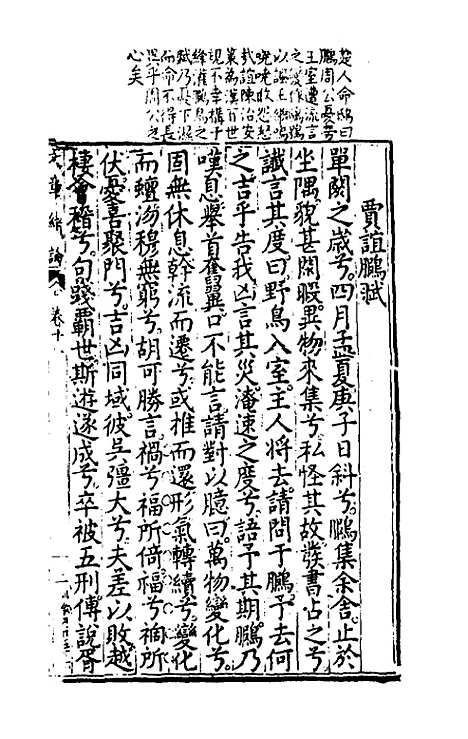 楚人命鴞曰
鵩周公憂
王室遭流言
之變作鴟鴞
以諷王
誼陳治安
策為漢百世
規不幸
絳灌
賦乃
而命不得長
心矣
賈誼鵩賦
單閼之歲兮四月孟夏庚子日斜兮鵩集余舎止於
坐隅貌甚閑暇異物來集兮私怪其故發書占之兮
讖言其度曰野鳥入室主人将去請問于鵩予去何
之吉乎告我凶言其災淹速之度兮語予其期鵩乃
嘆息舉首奮翼口不能言請對以臆曰萬物變化兮
固無休息斡流而遷兮或推而還形氣轉續兮變化
而蟺沕穆無窮兮胡可勝言禍兮福所倚福兮禍所
伏憂喜聚門兮吉凶同域彼吳彊大兮夫差以敗越
棲會稽兮句踐覇世斯遊遂成兮卒被五刑傅說胥
卷十